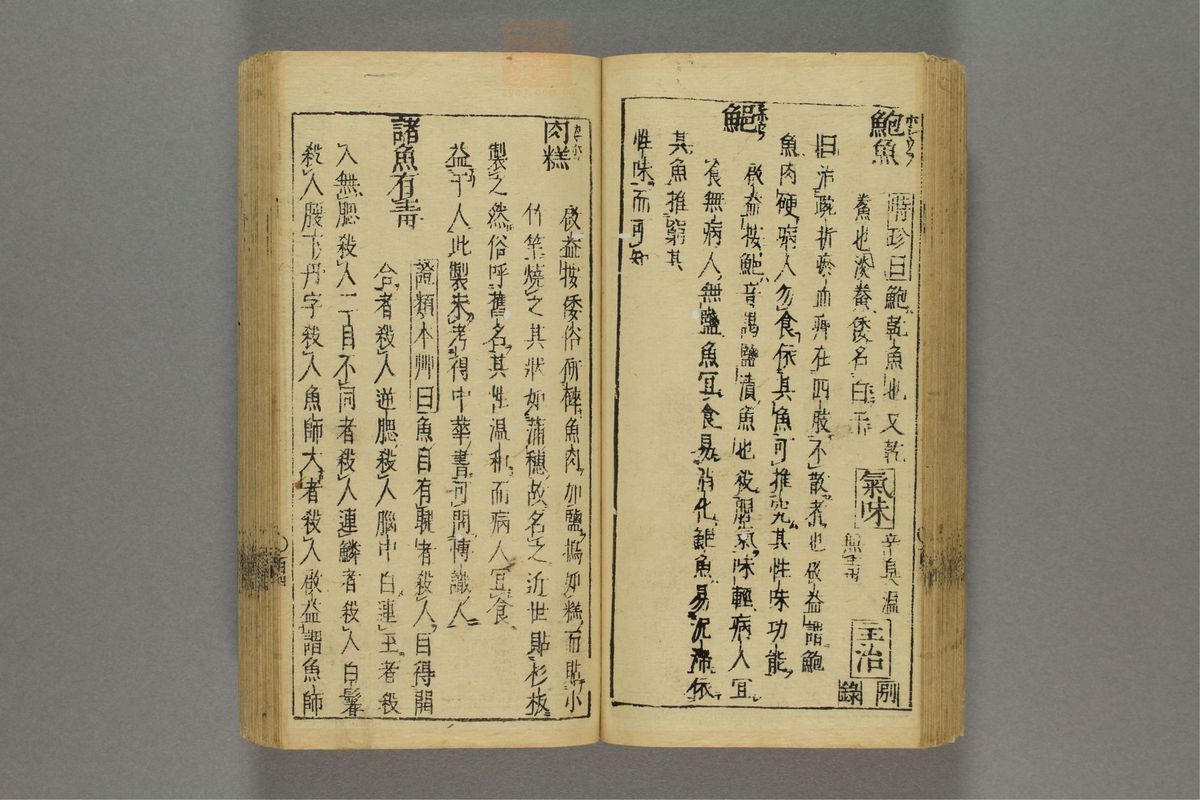 鮑魚 時珍曰鮑乾魚也又乾
鯗也淡鯗倭名白干 氣味 辛臭温無毒 主治 別錄
曰治 折瘀血痺在四肢不散者也啟益謂鮑
魚肉硬病人勿食依其魚可推究其性味功能
䱒 啟益按䱒音 鹽漬魚也 氣味輕病人宜
食無病人無鹽魚宜食易消化 魚易沉滯依
其魚推窮其
性味而可知
肉糕 啟益按倭俗所 魚肉加鹽搗如糕而貼小
竹 燒之其狀如蒲穗故名之近世貼杉板
製之然俗呼舊名其性温和而病人宜食
益于人此製未考得中華書可問博識人
諸魚有毒 證類本艸曰魚目有睫者殺人目得開
合者殺人逆腮殺人腦中白連 者殺
人無腮殺人二目不同者殺人連鱗者殺人白鬐
殺人腹下丹字殺人魚師大者殺人啟益謂魚師